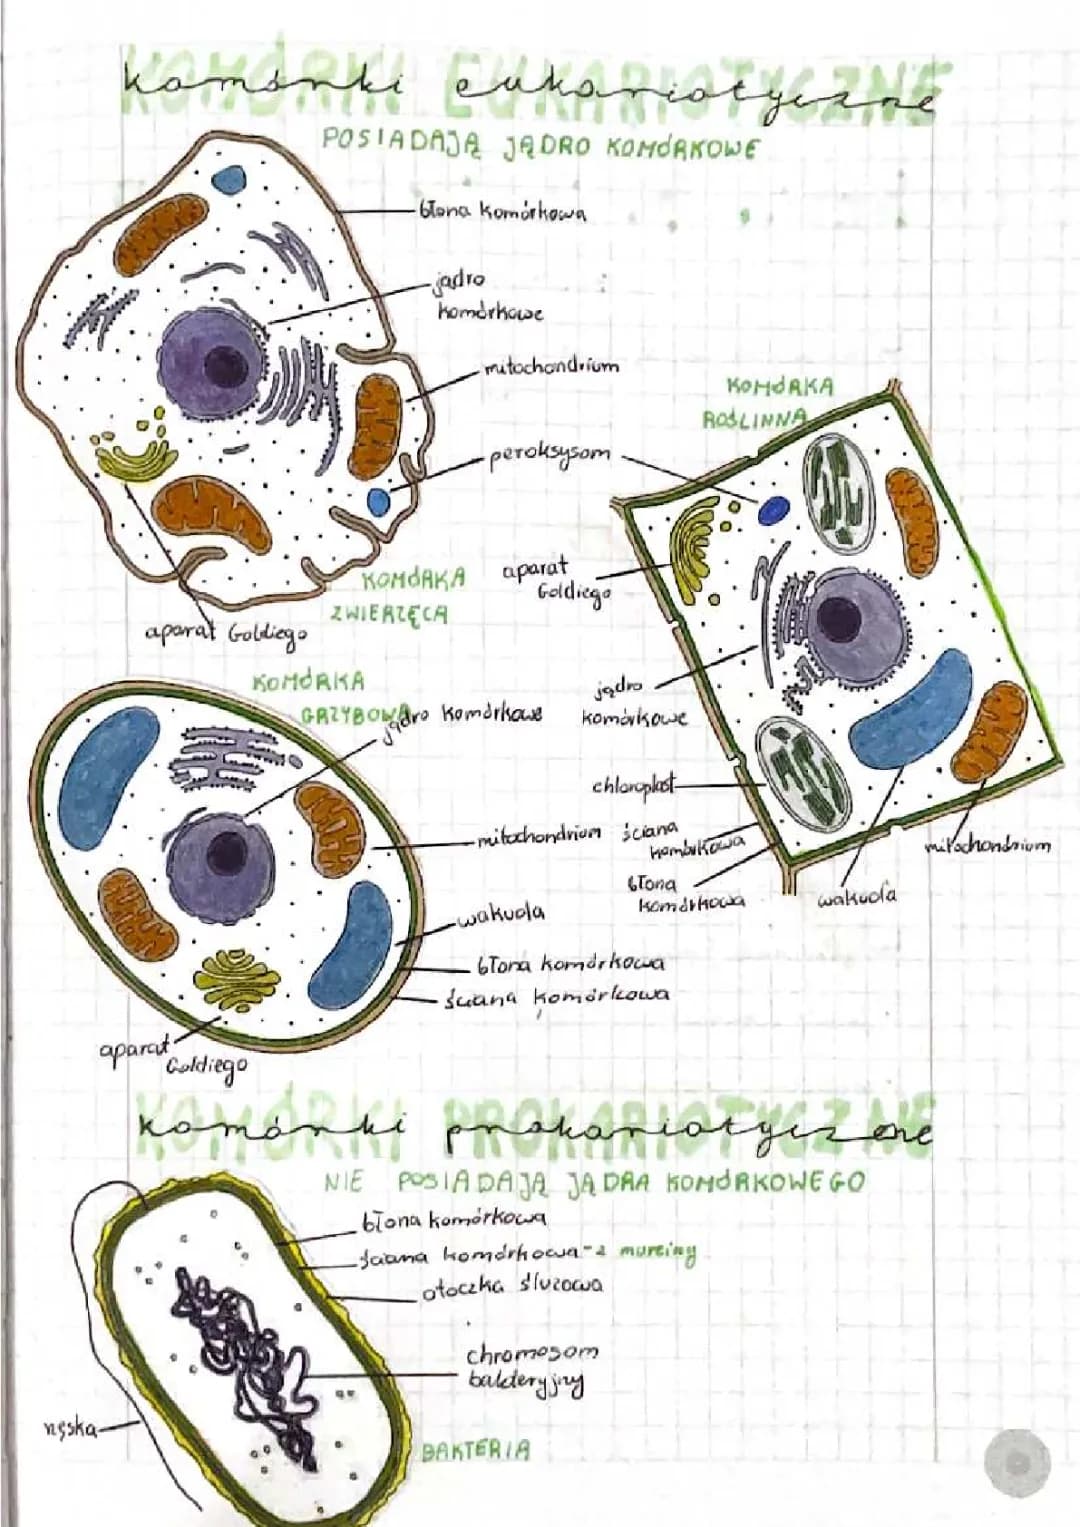 Komórki eukariotyczne
POSIADAJĄ JĄDRO KOMÓRKOWE
błona komórkowa
jądro
komórkowe
mitochondrium
KOMÓRKA
ROŚLINNA
peroksysom
aparat
Goldiego
KOMÓRKA
ZWIERZĘCA
aparat Goldiego
KOMÓRKA
GRZYBOWA
jądro komórkowe
jądro
komórkowe
chloroplast
mitochondrium
ściana
komórkowa
mitochondrium
błona
komórkowa
wakuola
wakuola
błona komórkowa
ściana komórkowa
aparat
Goldiego
Komórki prokariotyczne
NIE POSIADAJĄ JĄDRA KOMÓRKOWEGO
błona komórkowa
ściana komórkowa - z mureiny
otoczka śluzowa
chromosom
bakteryjny
rzęska
BAKTERIA